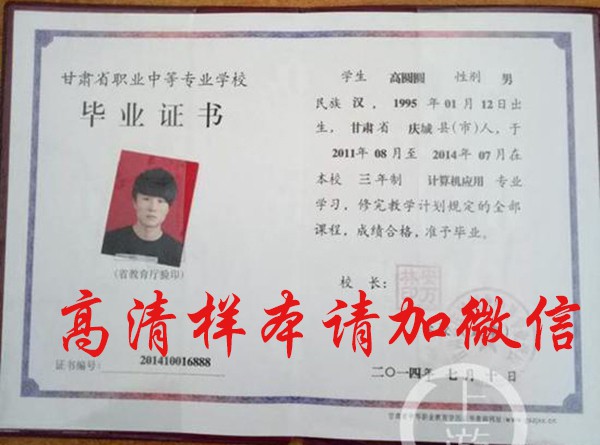 甘肃省职业中等专业学校
毕业证书
(省教育厅验印)
证书编号: 201410016888
学生 高圆圆 性别 男
民族 汉, 1995 年 01 月 12 日出
生, 甘肃省 庆城 县(市)人, 于
2011年 08 月至 2014 年 07 月在
本校 三年制 计算机应用 专业
学习, 修完教学计划规定的全部
课程, 成绩合格, 准予毕业。
校 长:
二〇一四年 七月 十日
高清样本请加微信